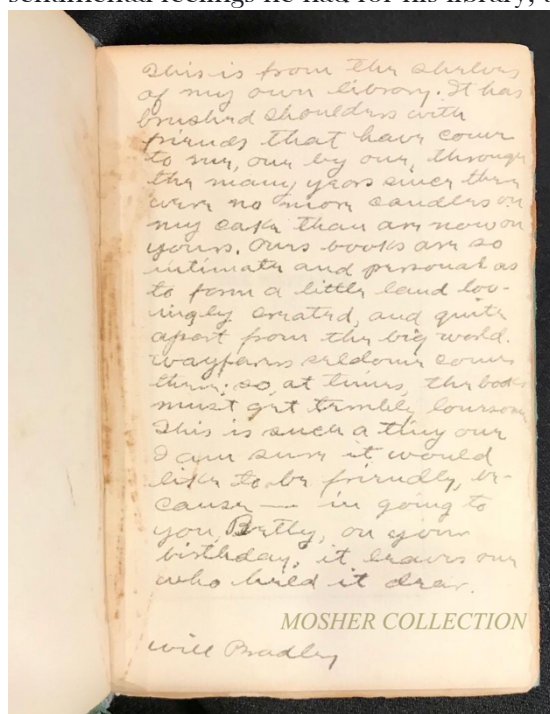 sentimental feelings he had for his library,
This is from the shelves
of my own library. It has
brushed shoulders with
friends that have come
to me, one by one, through
the many years since there
were no more candles on
my cake than are now on
yours. One's books are so
intimate and personal as
to form a little land lov-
ingly created, and quite
apart from the big world.
Wayfarers seldome come
there: so, at times, the books
must get terribly lonesome
This is such a tiny one
I am sure it would
like to be friendly, be-
cause — in going to
you, Bertly, on your
birthday, it leaves one
who held it dear.
MOSHER COLLECTION
Will Bradley